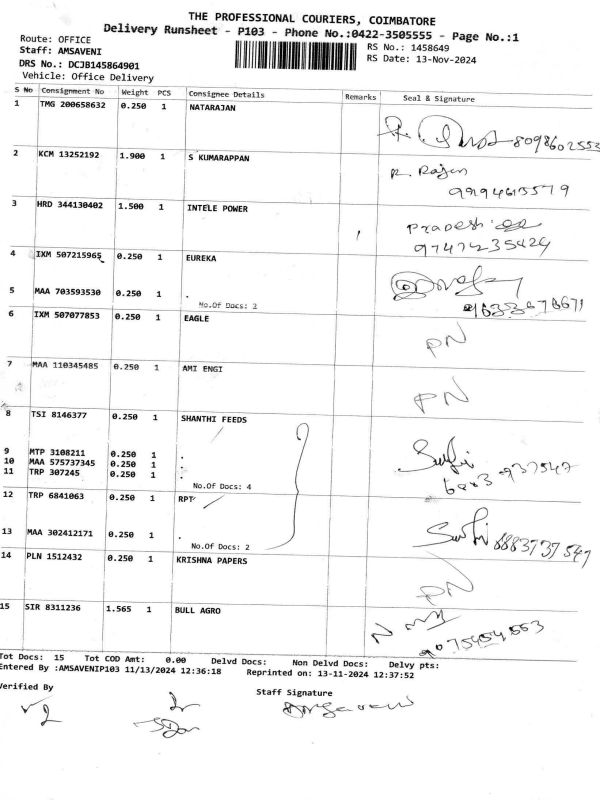 THE PROFESSIONAL COURIERS, COIMBATORE
Delivery Runsheet - P103 - Phone No.:0422-3505555 - Page No.:1
Route: OFFICE
RS No.: 1458649
Staff: AMSAVENI
RS Date: 13-Nov-2024
DRS No.: DCJB145864901
Vehicle: Office Delivery
S No Consignment No Weight PCS Consignee Details Remarks Seal & Signature
1 TMG 200658632 0.250 1 NATARAJAN
8098602553
2 KCM 13252192 1.900 1 S KUMARAPPAN
R. Rajen
9994613579
3 HRD 344130402 1.500 1 INTELE POWER
Pradeesh
97471235424
4 IXM 507215965 0.250 1 EUREKA
5 MAA 703593530 0.250 1 .
No.Of Docs: 2
6 IXM 507077853 0.250 1 EAGLE
PN
7 MAA 110345485 0.250 1 AMI ENGI
PN
8 TSI 8146377 0.250 1 SHANTHI FEEDS
9 MTP 3108211 0.250 1 .
10 MAA 575737345 0.250 1 .
11 TRP 307245 0.250 1 .
No.Of Docs: 4
12 TRP 6841063 0.250 1 RPT
13 MAA 302412171 0.250 1 .
No.Of Docs: 2
14 PLN 1512432 0.250 1 KRISHNA PAPERS
PN
15 SIR 8311236 1.565 1 BULL AGRO
Tot Docs: 15 Tot COD Amt: 0.00 Delvd Docs: Non Delvd Docs: Delvy pts:
Entered By :AMSAVENIP103 11/13/2024 12:36:18 Reprinted on: 13-11-2024 12:37:52
Verified By
Staff Signature